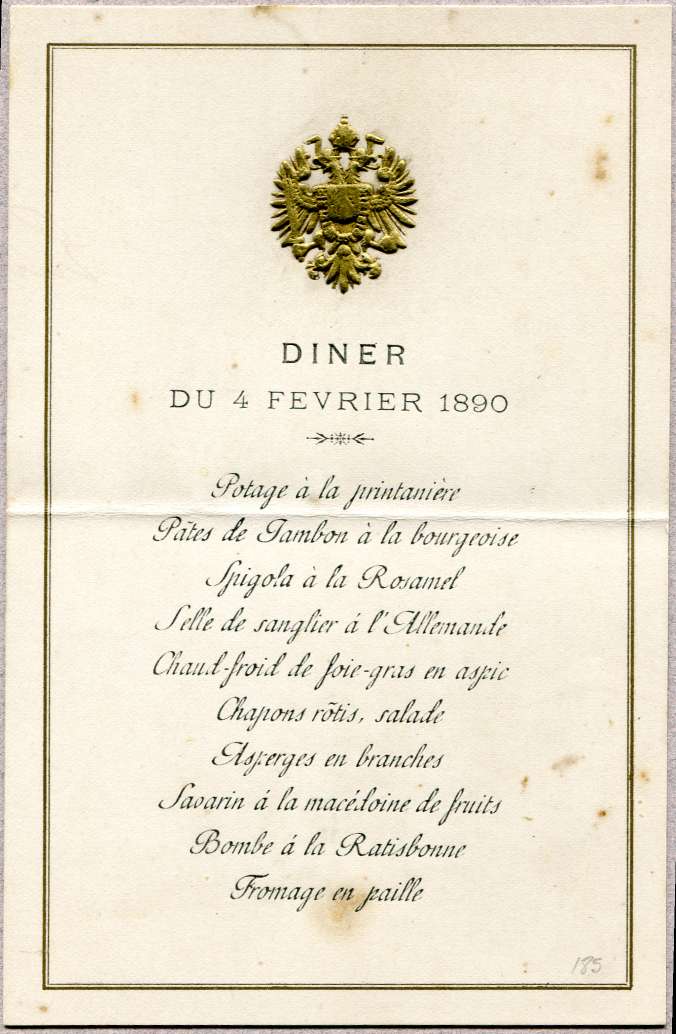 DINER
DU 4 FEVRIER 1890
Potage à la printanière
Pâtes de Jambon à la bourgeoise
Spigola à la Rosamel
Selle de sanglier á l'Allemande
Chaud-froid de foie-gras en aspic
Chapons rôtis, salade
Asperges en branches
Savarin á la macédoine de fruits
Bombe á la Ratisbonne
Fromage en paille
185